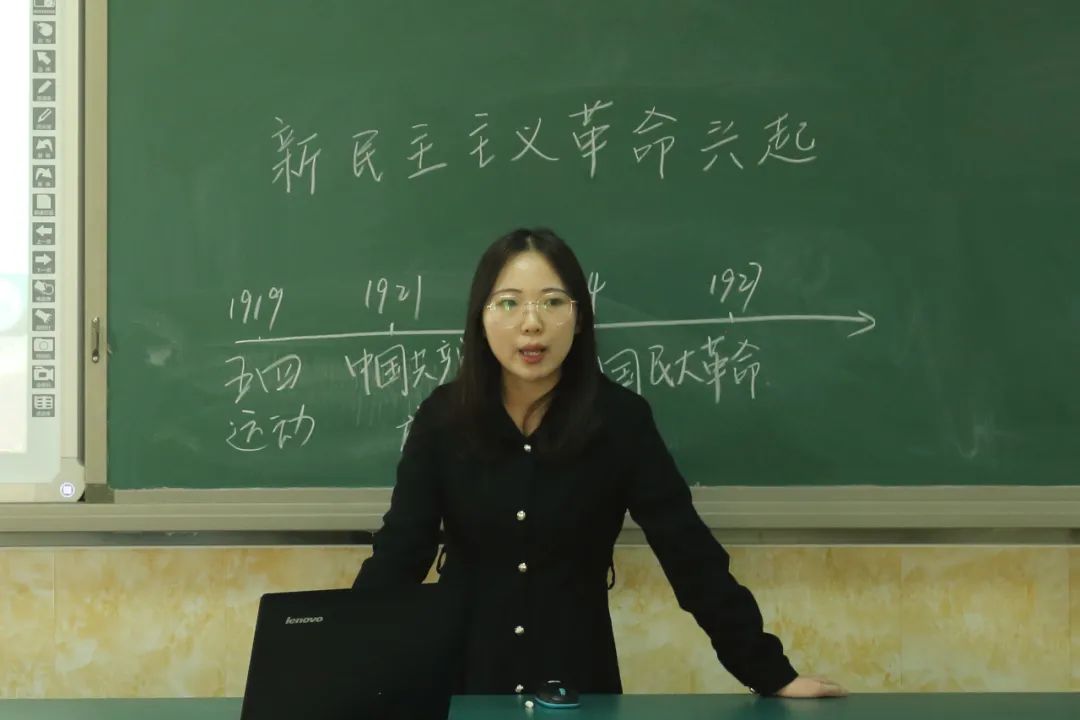 新民主主义革命兴起
1919 1921 4 1927
五四 中国共 国民大革命
运动
lenovo